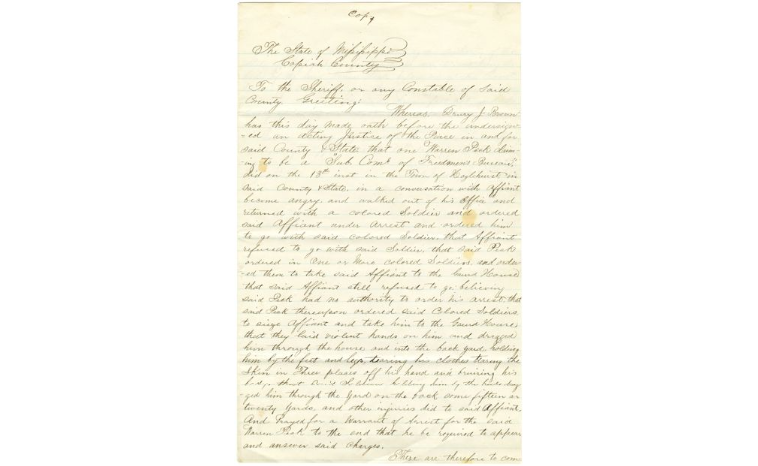 Copy
The State of Mississippi
Copiah County
To the Sheriff or any Constable of said
County Greeting: Whereas Drury J. Brown
has this day made oath before the undersign
-ed an acting Justice of the Peace in and for
said County & State that one Warren Peck claim
-ing to be a Sub Com of Freedmens Bureau
did on the 18th inst in the Town of Hazlehurst in
said County & State in a conversation with affiant
become angry and walked out of his Office and
returned with a colored Soldier and ordered
said Affiant under arrest and ordered him
to go with said colored Soldier, that Affiant
refused to go with said Soldier that said Peck
ordered in one or more colored Soldiers and order
-ed them to take said Affiant to the Guard House
that said Affiant still refused to go believing
said Peck had no authority to order his arrest that
said Peck thereupon ordered said Colored Soldiers
to seize Affiant and take him to the Guard House,
that they laid violent hands on him and dragged
him through the house and into the back yard holding
him by the feet and legs, tearing his clothes tearing the
skin in three places off his hand and bruising his
body, that said Soldiers holding him by the heels drag
ged him through the yard on the back some fifteen or
twenty yards and other injuries did to said Affiant
And Prayed for a Warrant of Arrest for the said
Warren Peck to the end that he be required to appear
and answer said charges.
These are therefore to com